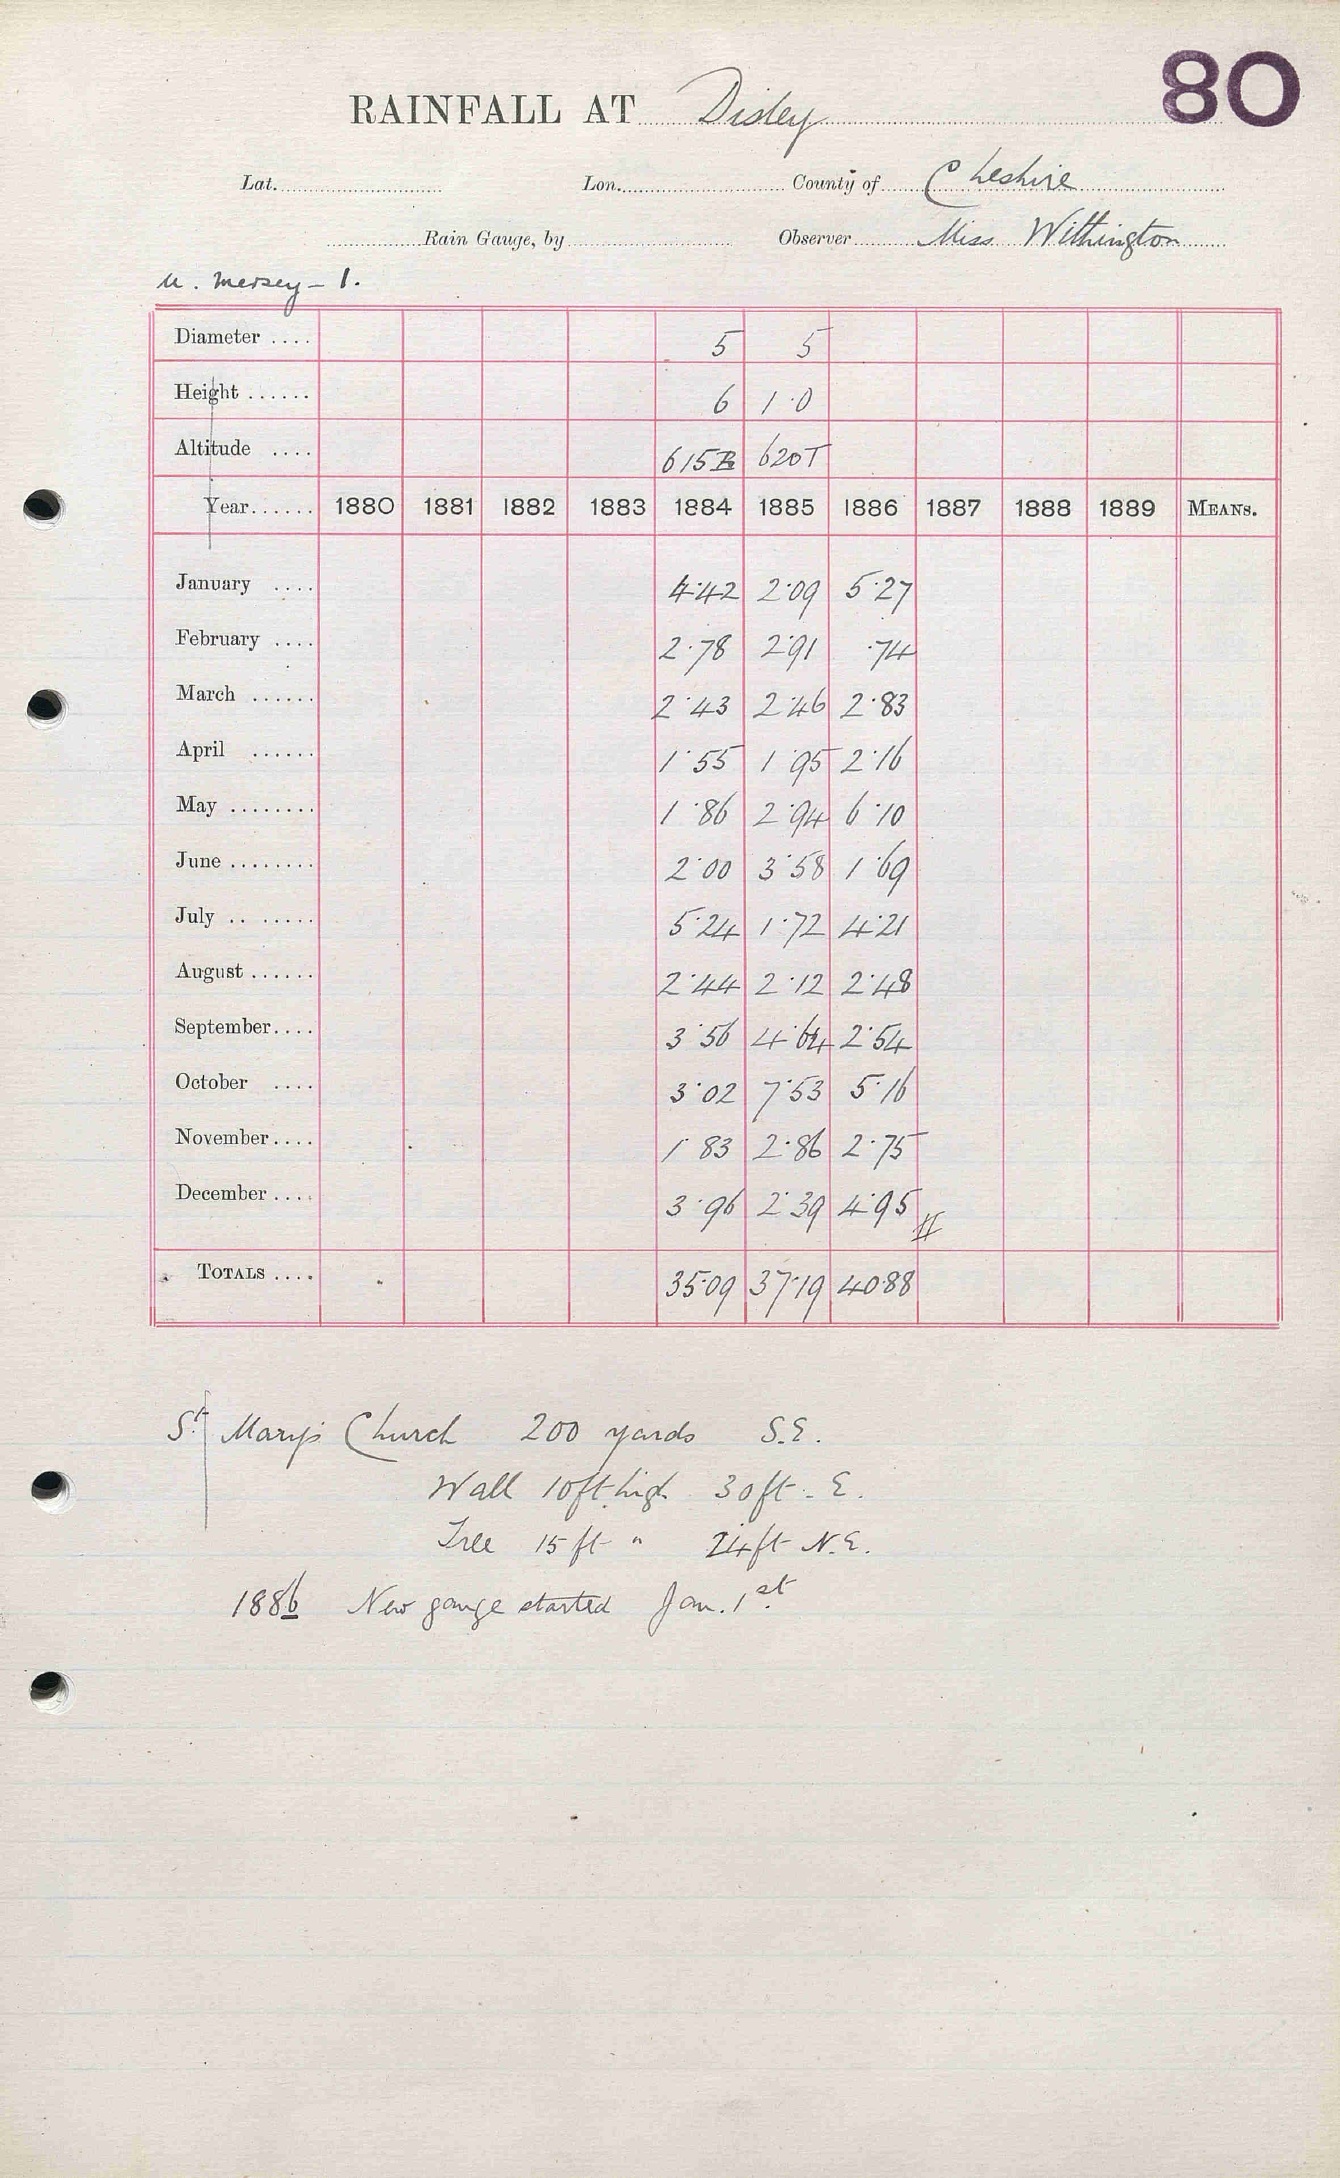 80
RAINFALL AT Disley
Lat. Lon. County of Cheshire
Rain Gauge, by Observer Miss Withington
u. Mersey - 1.
Diameter .... 5 5
Height ...... 6 1·0
Altitude .... 615B 620T
Year...... 1880 1881 1882 1883 1884 1885 1886 1887 1888 1889 MEANS.
January .... 4·42 2·09 5·27
February .... 2·78 2·91 ·74
March ...... 2·43 2·46 2·83
April ...... 1·55 1·95 2·16
May ........ 1·86 2·94 6·10
June ........ 2·00 3·58 1·69
July .. ..... 5·24 1·72 4·21
August ...... 2·44 2·12 2·48
September.... 3·56 4·64 2·54
October .... 3·02 7·53 5·16
November.... 1·83 2·86 2·75
December .... 3·96 2·39 4·95 #
TOTALS .... 35·09 37·19 40·88
St Mary's Church 200 yards S.E.
Wall 10ft high 30ft - E.
Tree 15 ft " 24ft N.E.
1886 New gauge started Jan. 1st.